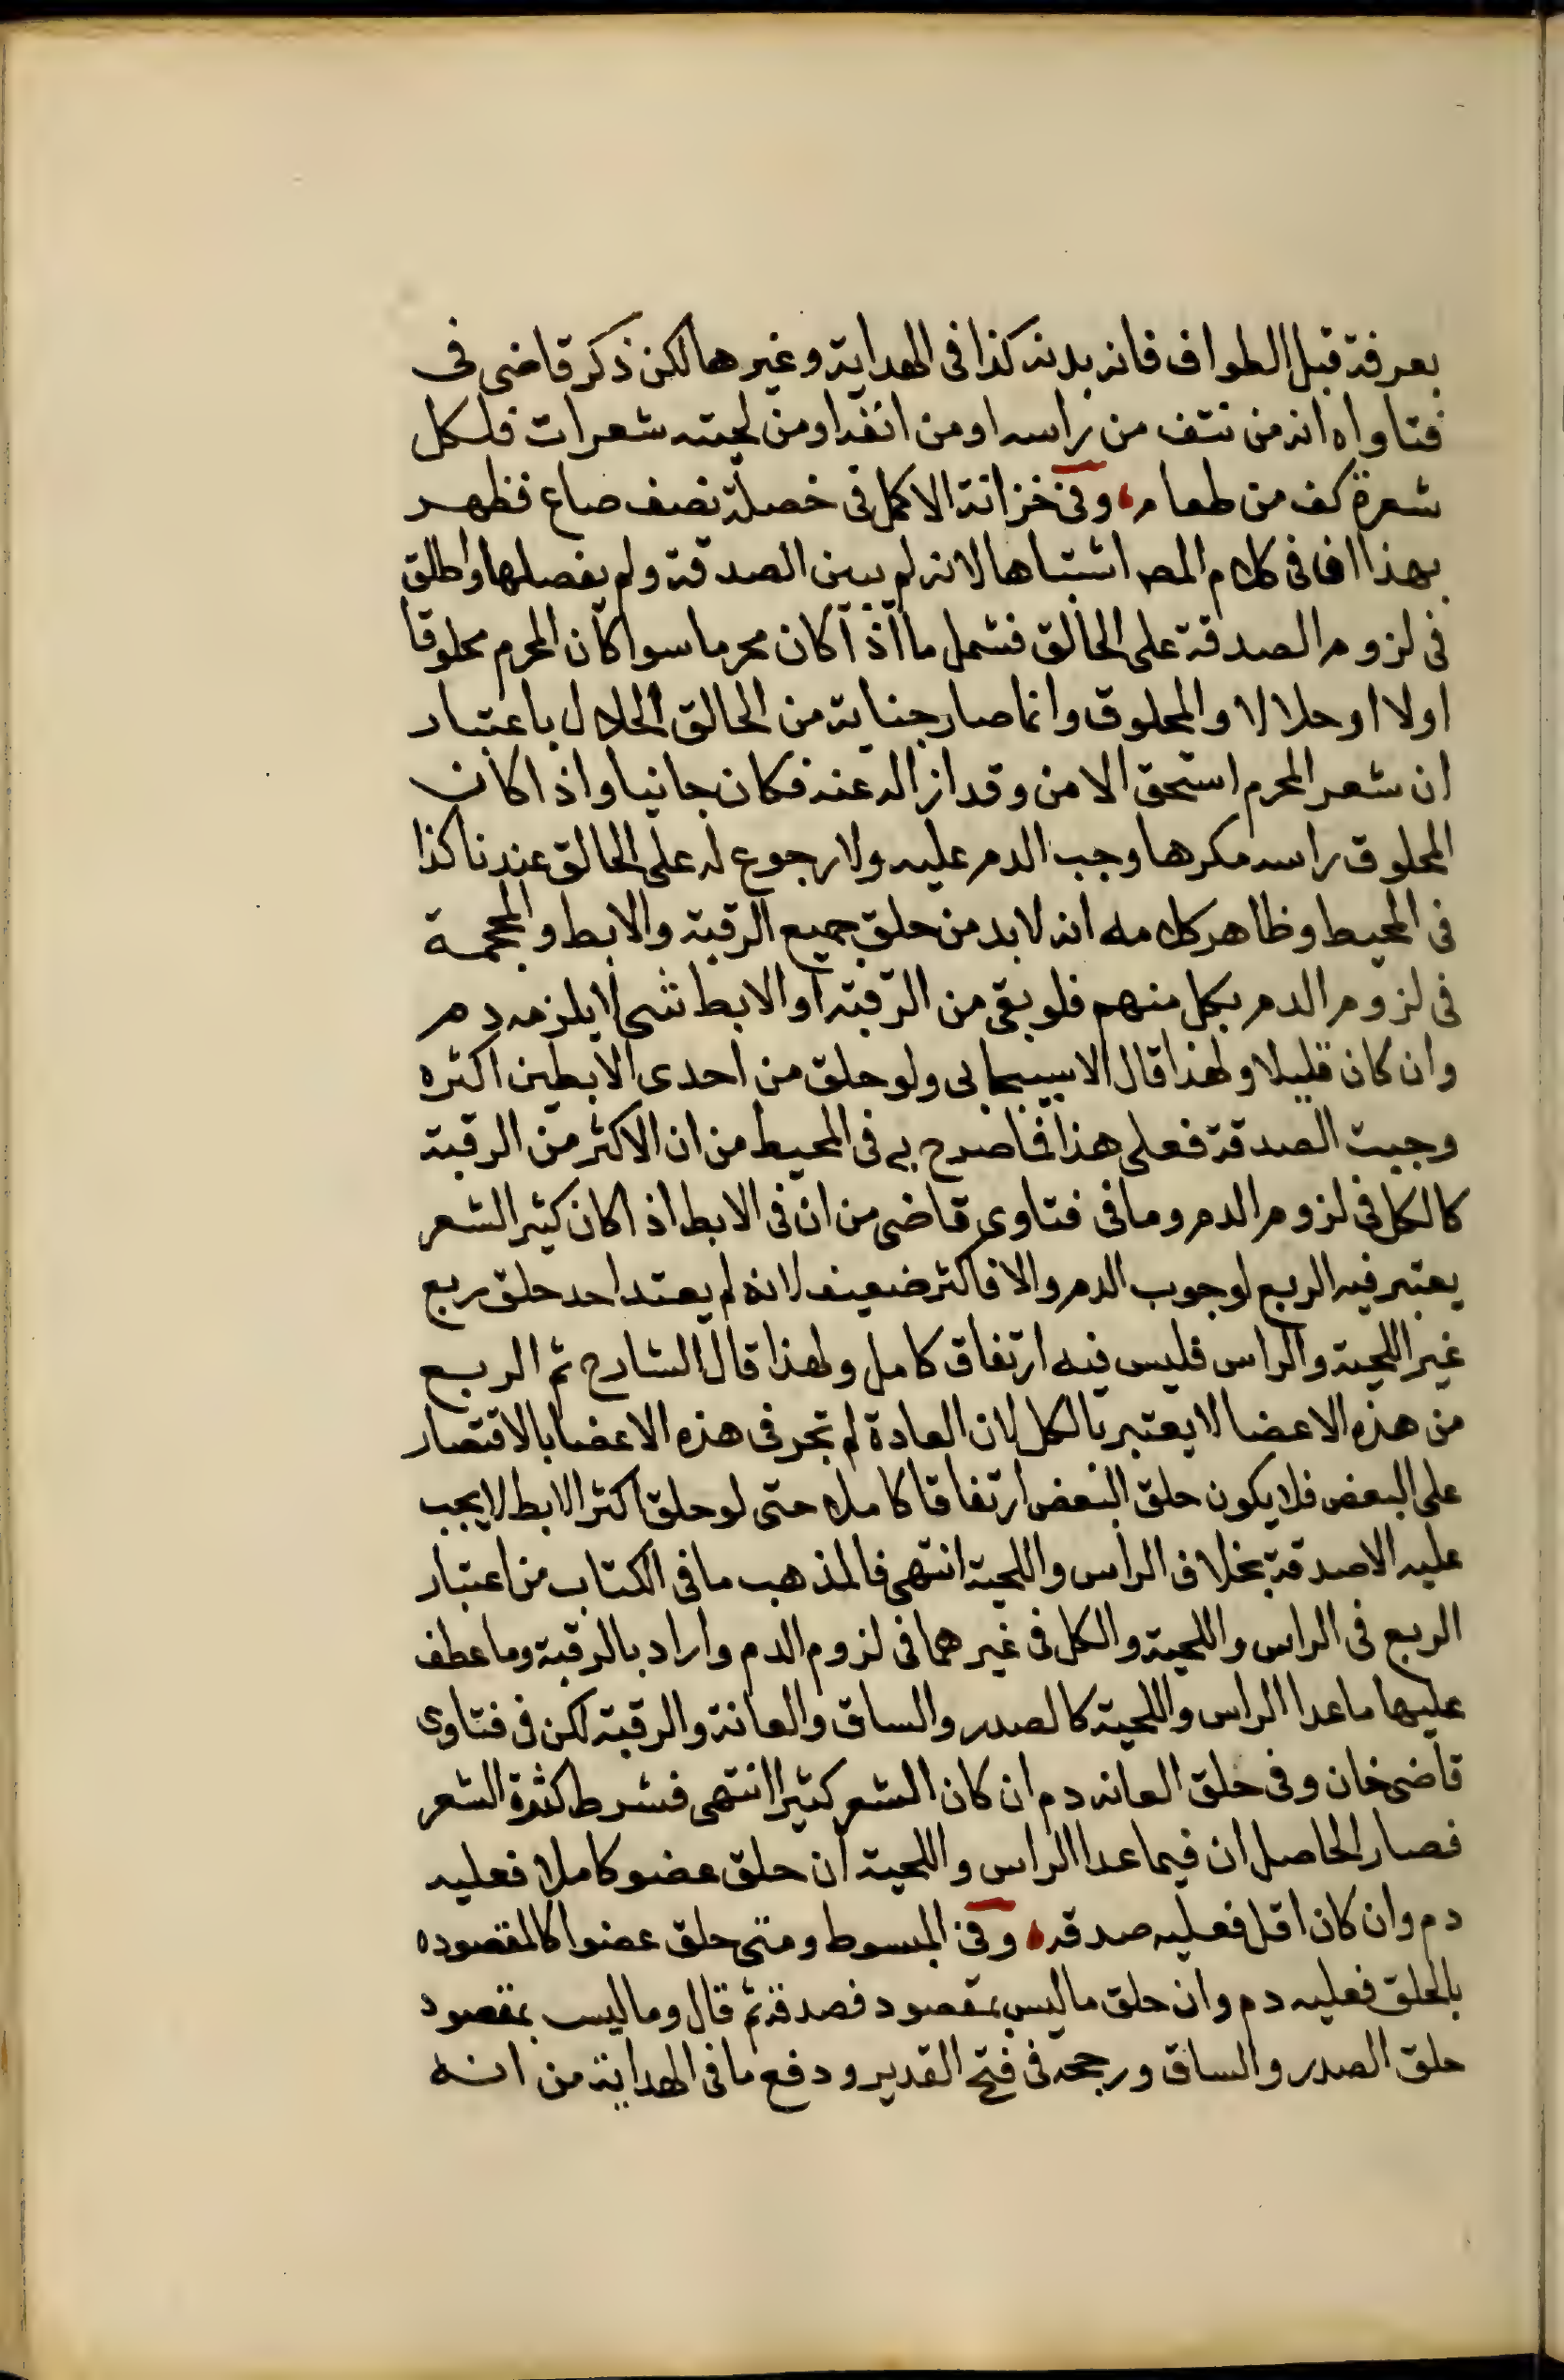 بعرفة قبل الطواف فانه بدنه كذا فى الهداية وغيرها لكن ذكر قاضى فى
فتاواه انه من نتف من راسه او من انفه او من لحيته شعرات فلكل
شعرة كف من طعام، وفى خزانة الاكمل فى خصلة نصف صاع فظهر
بهذا ان فى كلام المص اشتباها لانه لم يبين الصدقة ولم يفصلها واطلق
فى لزوم الصدقة على الحالق فشمل ما اذا كان محرما سوا كان المحرم محلوقا
اولا او حلالا والمحلوق وانما صار جناية من الحالق الحلال باعتبار
ان شعر المحرم استحق الامن وقد ازاله عنه فكان جانيا واذا كان
المحلوق راسه مكرها وجب الدم عليه ولا رجوع له على الحالق عندنا كذا
فى المحيط وظاهر كلامه انه لابد من حلق جميع الرقبة والابط والمحجمة
فى لزوم الدم بكل منهم فلو بقى من الرقبة او الابط شى لا يلزمه دم
وان كان قليلا ولهذا قال الاسبيجابى ولو حلق من احدى الابطين اكثره
وجبت الصدقة فعلى هذا فما صرح به فى المحيط من ان الاكثر من الرقبة
كالكل فى لزوم الدم وما فى فتاوى قاضى من ان فى الابط اذا كان كثير الشعر
يعتبر فيه الربع لوجوب الدم والا فاكثر ضعيف لانه لم يعتد احد حلق ربع
غير اللحية والراس فليس فيه ارتفاق كامل ولهذا قال الشارح ثم الربع
من هذه الاعضا لا يعتبر بالكل لان العادة لم تجر فى هذه الاعضا بالاقتصار
على البعض فلا يكون حلق البعض ارتفاقا كاملا حتى لو حلق اكثر الابط لا يجب
عليه الاصدقة بخلاف الراس واللحية انتهى فالمذهب ما فى الكتاب من اعتبار
الربع فى الراس واللحية والكل فى غيرهما فى لزوم الدم واراد بالرقبة وما عطف
عليها ما عدا الراس واللحية كالصدر والساق والعانة والرقبة لكن فى فتاوى
قاضى خان وفى حلق العانه دم ان كان الشعر كثيرا انتهى فشرط كثرة الشعر
فصار الحاصل ان فيما عدا الراس واللحية ان حلق عضو كاملا فعليه
دم وان كان اقل فعليه صدقه، وفى المبسوط ومتى حلق عضوا كالمقصوده
بالحلق فعليه دم وان حلق ما ليس بمقصود فصدقة ثم قال وما ليس بمقصود
حلق الصدر والساق ورجحه فى فتح القدير ودفع ما فى الهداية من انه